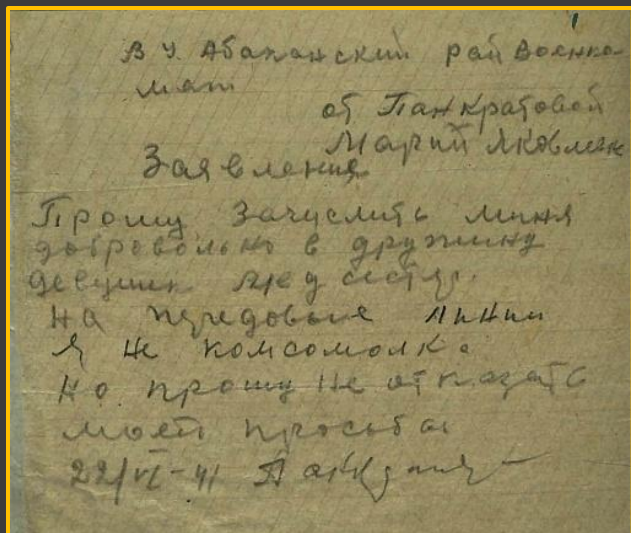 В У. Абаканский рай Военко
мат
от Панкратовой
Марий Яковлевн
Заявления
Прошу Зачислить миня
добровольно в дружину
девушек мед сестр.
На передовые линии
я не комсомолка
Но прошу не отказать
моей просьбы
22/VI-41